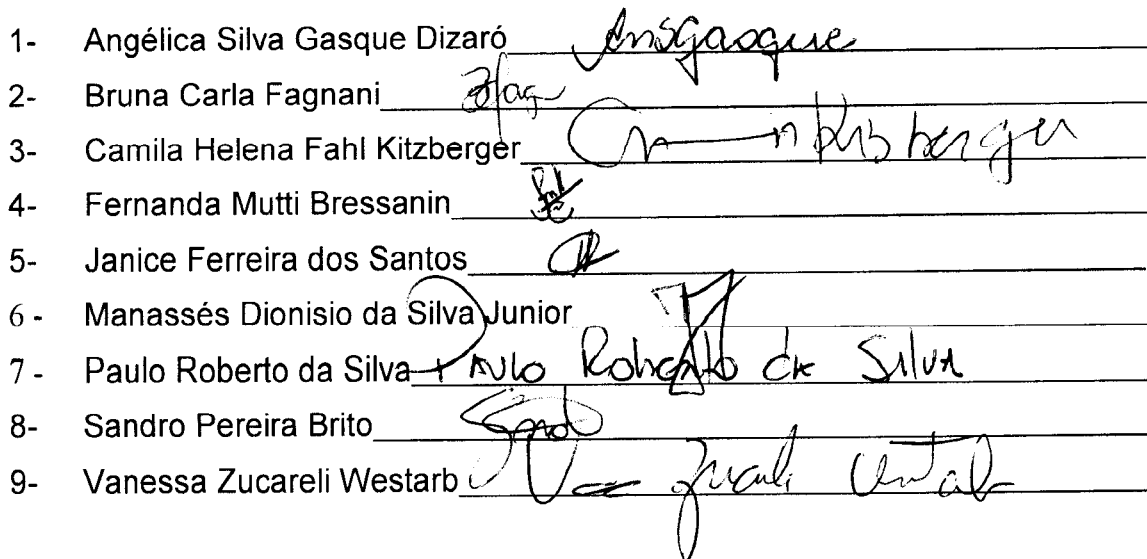 1- Angélica Silva Gasque Dizaró Ansgasque
2- Bruna Carla Fagnani
3- Camila Helena Fahl Kitzberger Kitzberger
4- Fernanda Mutti Bressanin
5- Janice Ferreira dos Santos
6 - Manassés Dionisio da Silva Junior
7 - Paulo Roberto da Silva Paulo Roberto da Silva
8- Sandro Pereira Brito
9- Vanessa Zucareli Westarb